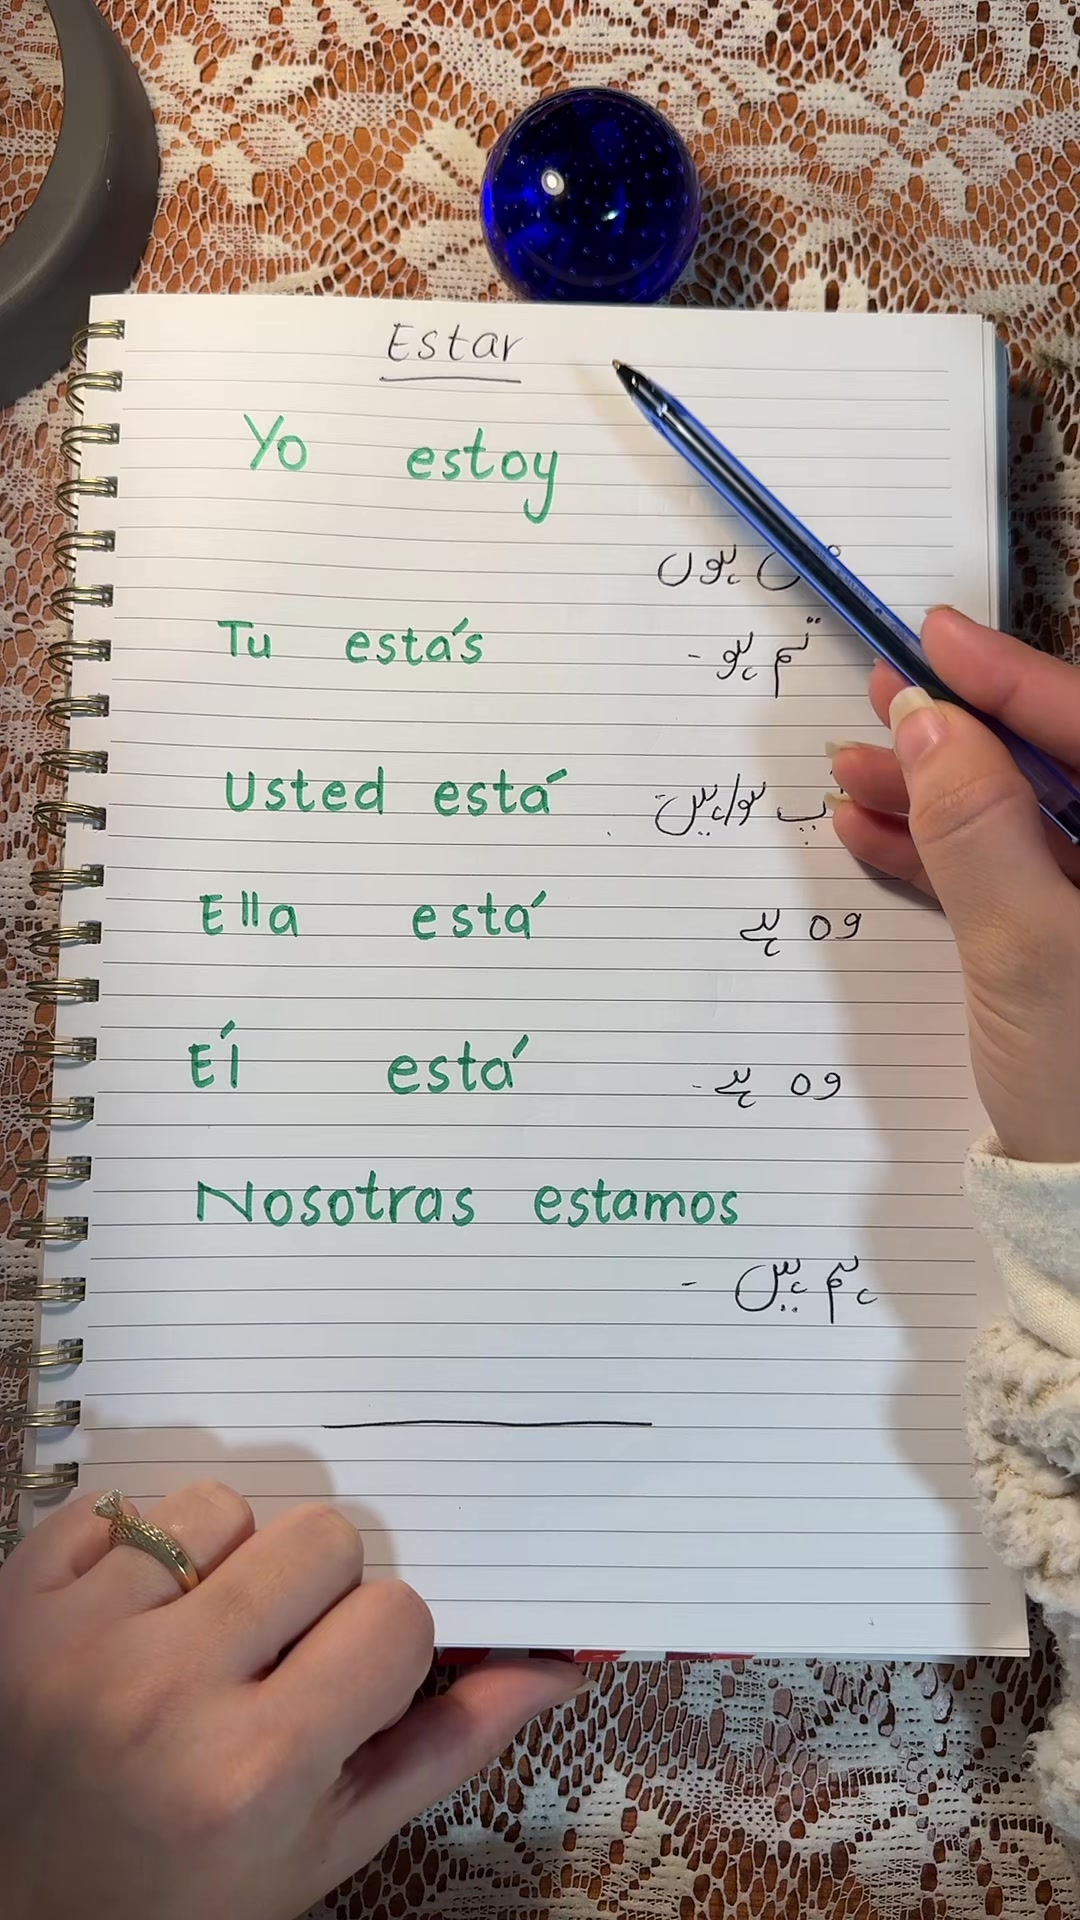 Estar
Yo estoy
ہوں
Tu estás
تم ہو -
Usted está
Ella está
وہ ہے
Él está
وہ ہے -
Nosotras estamos
ہم ہیں -